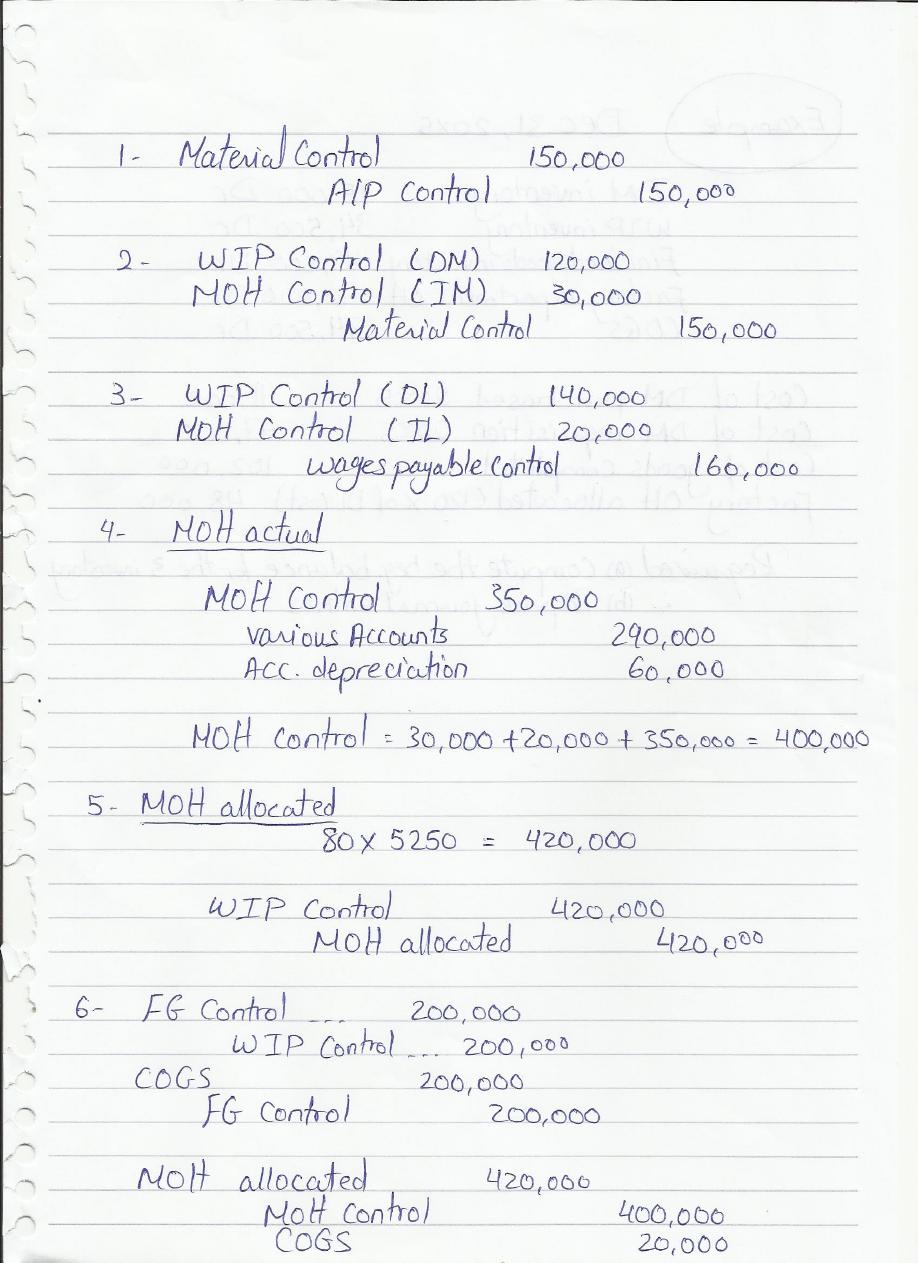 1- Material Control 150,000
A/P Control 150,000
2- WIP Control (DM) 120,000
MOH Control (IM) 30,000
Material Control 150,000
3- WIP Control (DL) 140,000
MOH Control (IL) 20,000
wages payable Control 160,000
4- MOH actual
MOH Control 350,000
various Accounts 290,000
Acc. depreciation 60,000
MOH Control = 30,000 + 20,000 + 350,000 = 400,000
5- MOH allocated
80 x 5250 = 420,000
WIP Control 420,000
MOH allocated 420,000
6- FG Control .... 200,000
WIP Control ... 200,000
COGS 200,000
FG Control 200,000
MOH allocated 420,000
MOH Control 400,000
COGS 20,000